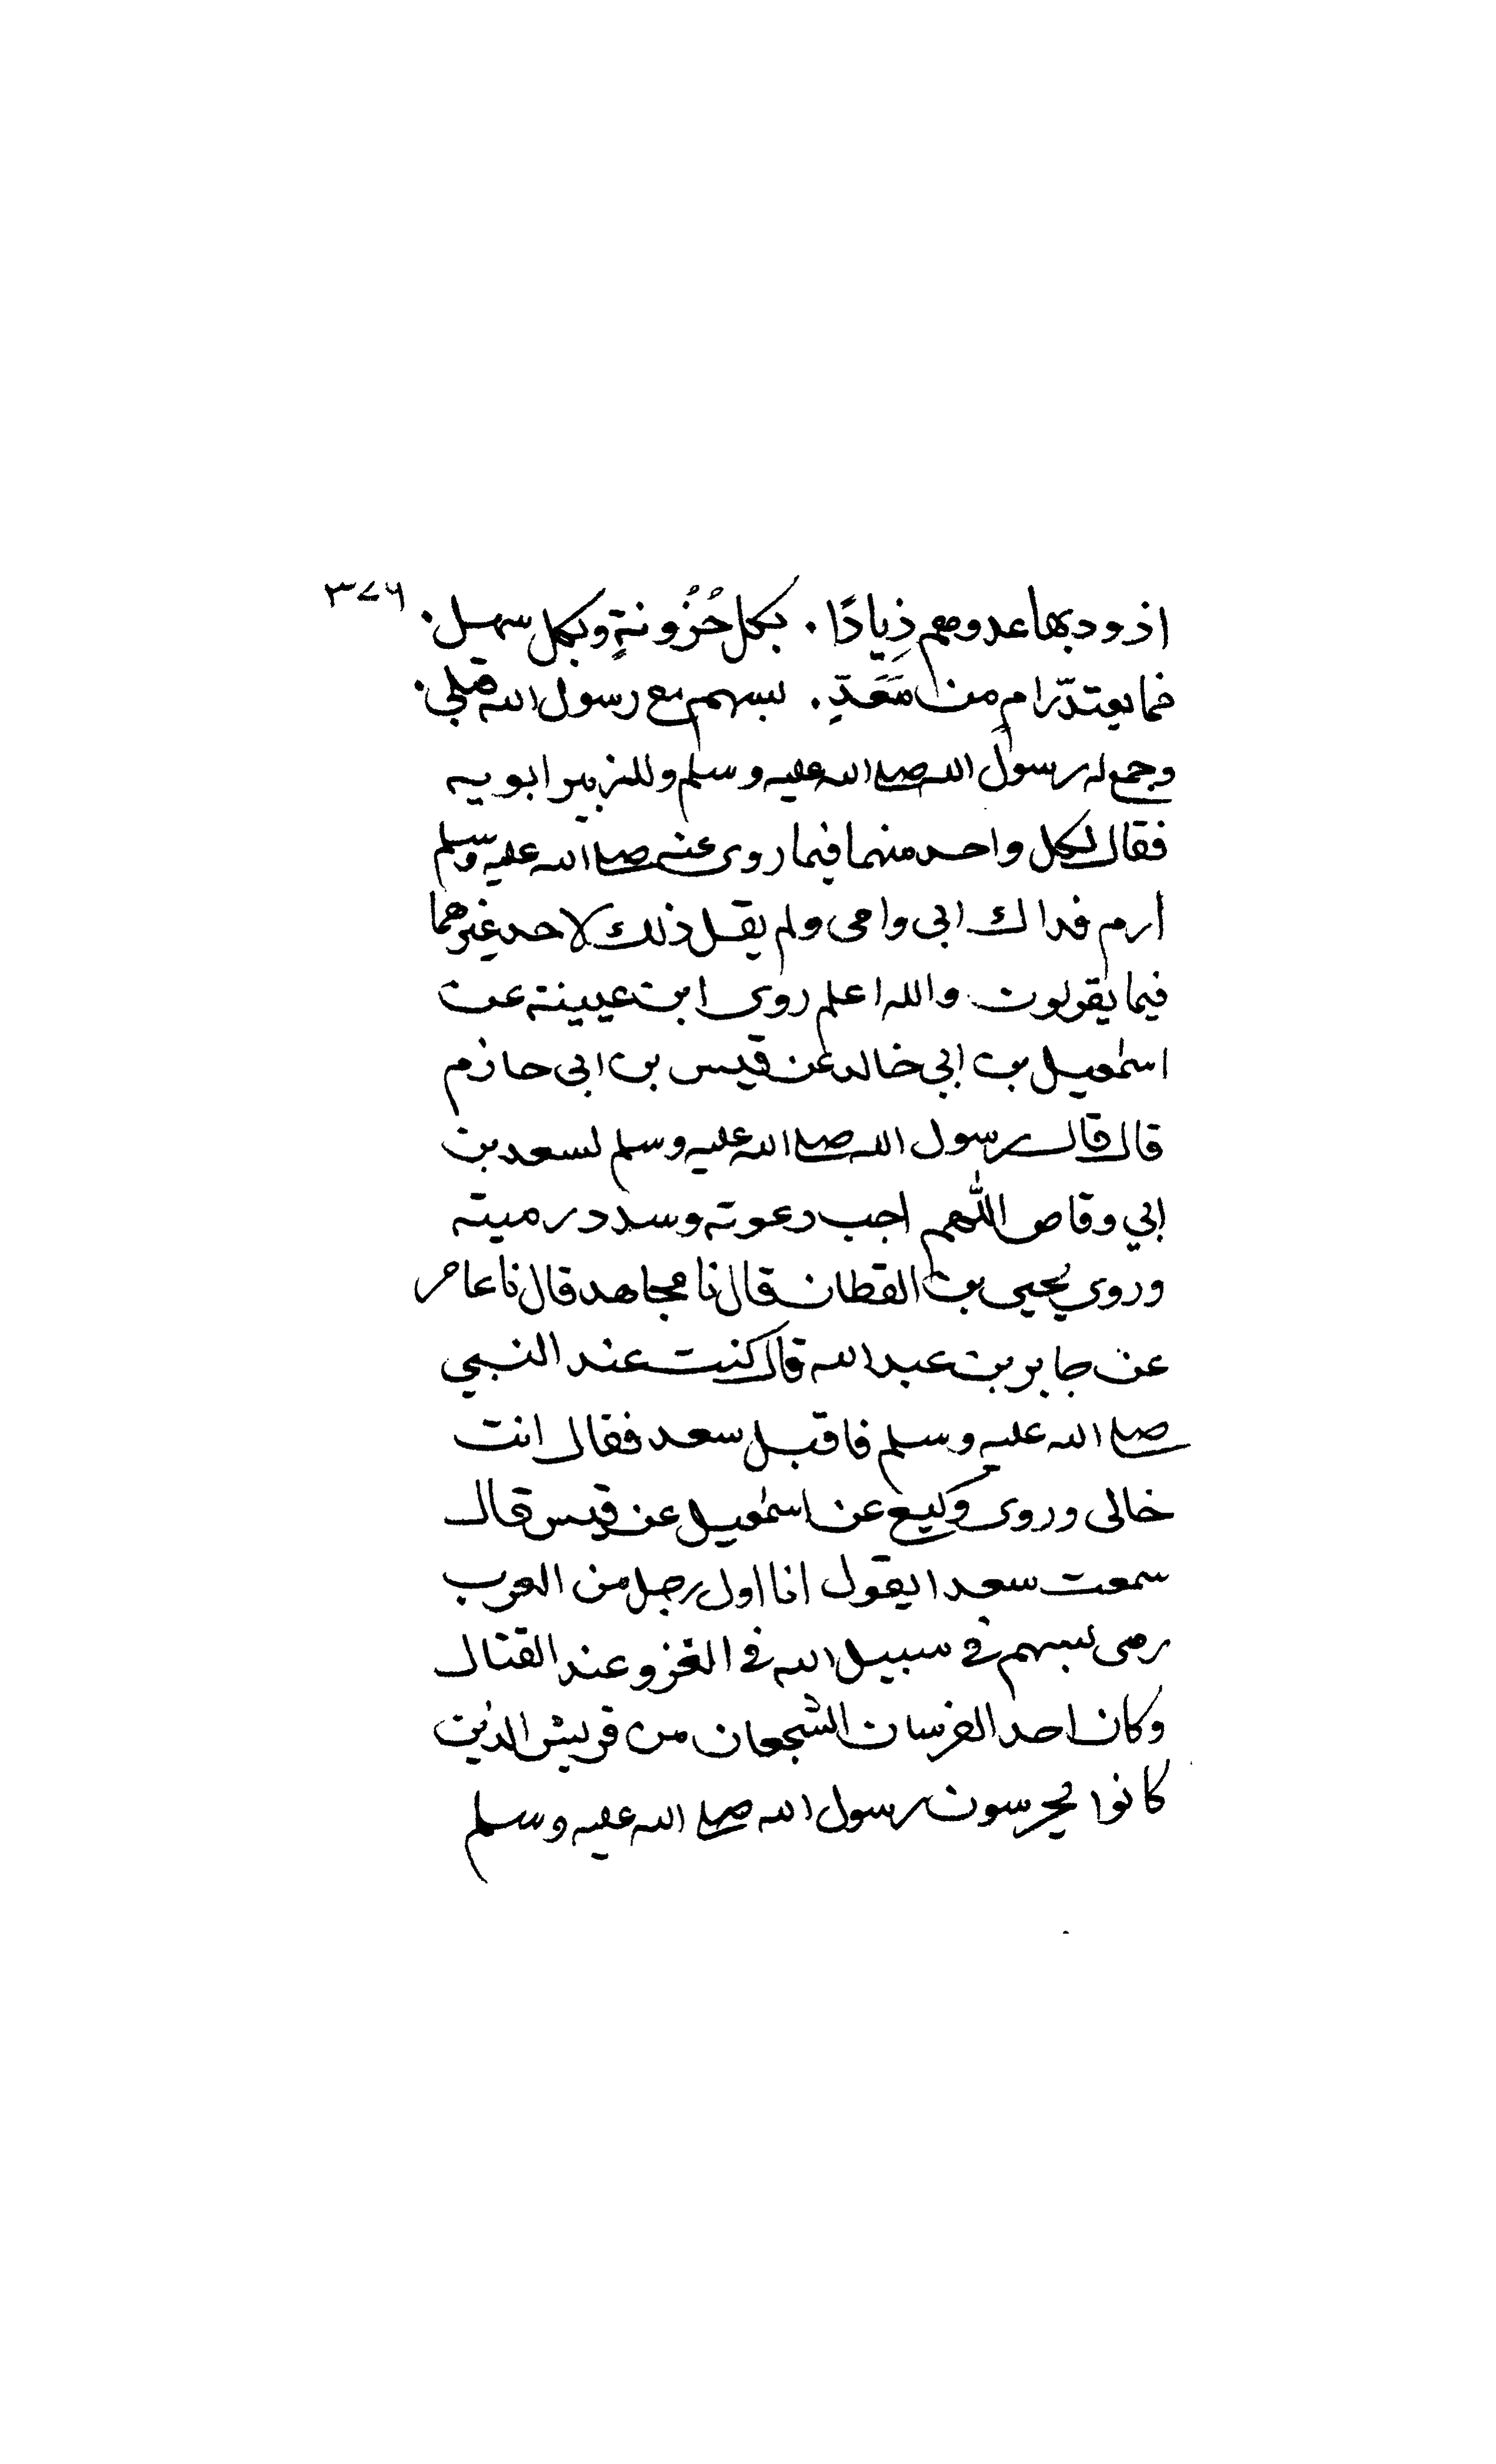 ٣٧٦
اذود بها عدوهم ذِيادًا . بكل حُزُونةٍ وبكل سهل .
فما يعتدّ رامٍ من مَعَدّ . بسهم مع رسول الله قبلي .
وجمع له رسول الله صلى الله عليه وسلم وللزبير ابويه
فقال لكل واحد منهما فيما روى عنه صلى الله عليه وسلم
ارم فداك ابى وامى ولم يقل ذلك لاحد غيرهما
فيما يقولون والله اعلم روى ابن عيينة عن
اسمٰعيل بن ابي خالد عن قيس بن ابى حازم
قال قال رسول الله صلى الله عليه وسلم لسعد بن
ابي وقاص اللٰهم اجب دعوته وسدد رميته
وروي يحيى بن القطان قال نا مجاهد قال نا عامر
عن جابر بن عبد الله قال كنت عند النبي
صلى الله عليه وسلم فاقبل سعد فقال انت
خالى وروى وكيع عن اسمٰعيل عن قيس قال
سمعت سعدا يقول انا اول رجل من العرب
رمى بسهم في سبيل الله في الغزو عند القتال
وكان احد الفرسان الشجعان من قريش الذين
كانوا يحرسون رسول الله صلى الله عليه وسلم